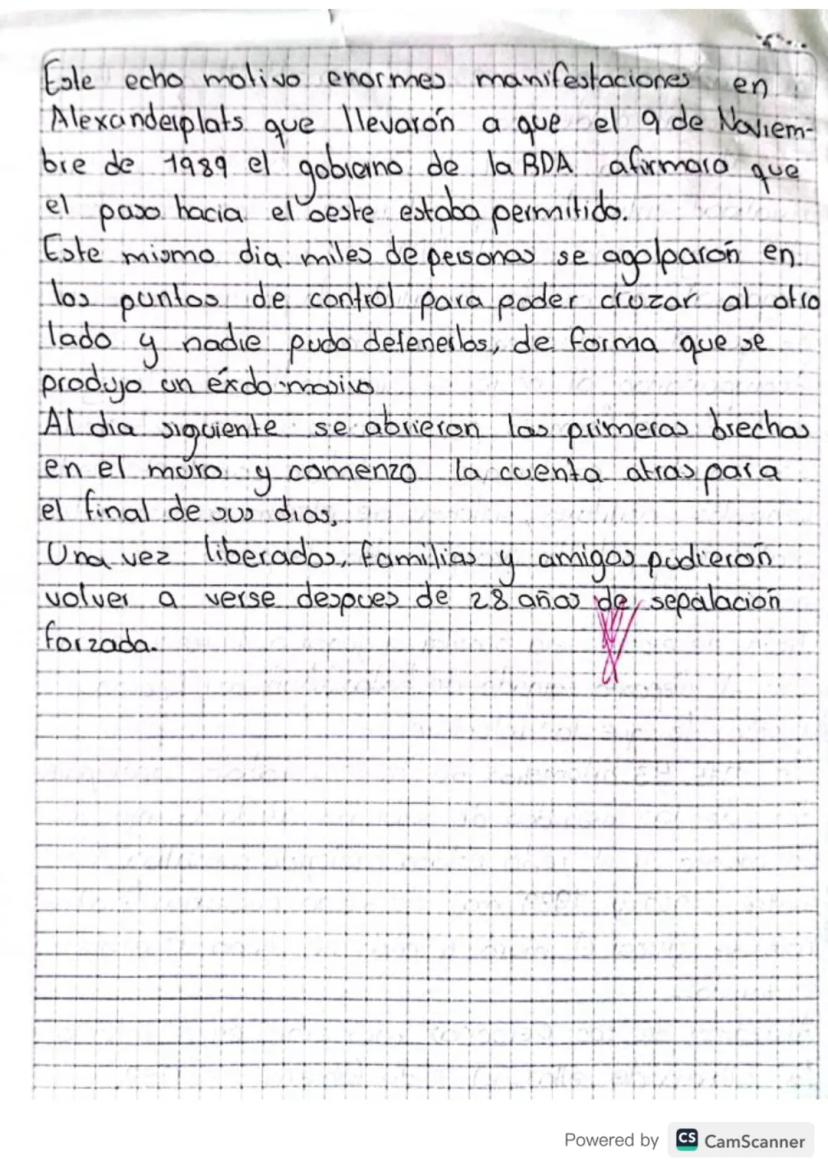 Este echo motivo enormes manifestaciones en
Alexanderplats que llevarón a que el 9 de Noviem-
bre de 1989 el gobierno de la BDA afirmara que
el paso hacia el oeste estaba permitido.
Este mismo dia miles de personas se agolparón en
los puntos de control para poder cruzar al otro
lado y nadie pudo detenerlos, de forma que se
produjo un éxdo masivo
Al dia siguiente se abrieron las primeras brechas
en el muro y comenzo la cuenta atras para
el final de sus dias.
Una vez liberados, familias y amigos pudierón
volver a verse despues de 28 años de sepalación
forzada.
Powered by CS CamScanner